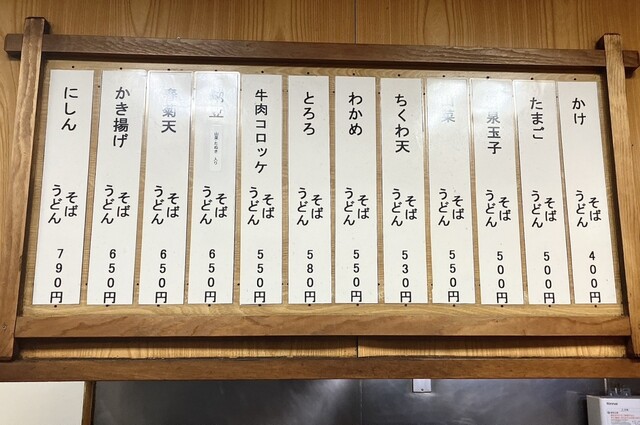 かけ そば うどん 400円
たまご そば うどん 500円
泉玉子 そば うどん 500円
菜 そば うどん 550円
ちくわ天 そば うどん 530円
わかめ そば うどん 550円
とろろ そば うどん 580円
牛肉コロッケ そば うどん 550円
そば うどん 650円
菊天 そば うどん 650円
かき揚げ そば うどん 650円
にしん そば うどん 790円